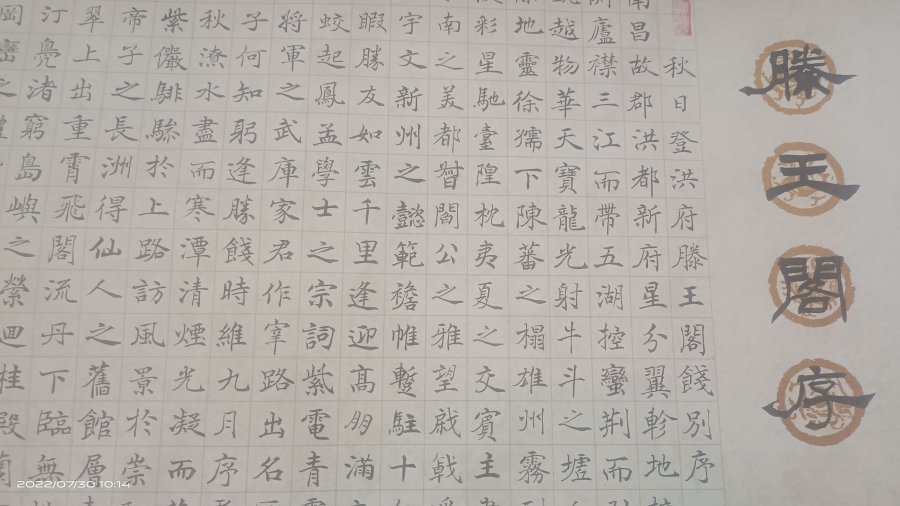 滕王閣序
秋日登洪府滕王閣餞別序
南昌故郡洪都新府星分翼軫地
廬襟三江而帶五湖控蠻荆而
越物華天寶龍光射牛斗之墟
地靈徐孺下陳蕃之榻雄州霧
彩星馳臺隍枕夷夏之交賓主
南之美都督閻公之雅望戟
宇文新州之懿範襜帷暫駐十
暇勝友如雲千里逢迎高朋滿
蛟起鳳孟學士之宗詞紫電青
將軍之武庫家君作宰路出名
子何知躬逢勝餞時維九月序
秋潦水盡而寒潭清煙光凝而
紫儼騑驂於上路訪風景於崇
帝子之長洲得仙人之舊館層
翠上出重霄飛閣流丹下臨無
汀鳧渚窮島嶼之縈迴桂殿
2022/07/30 10:14